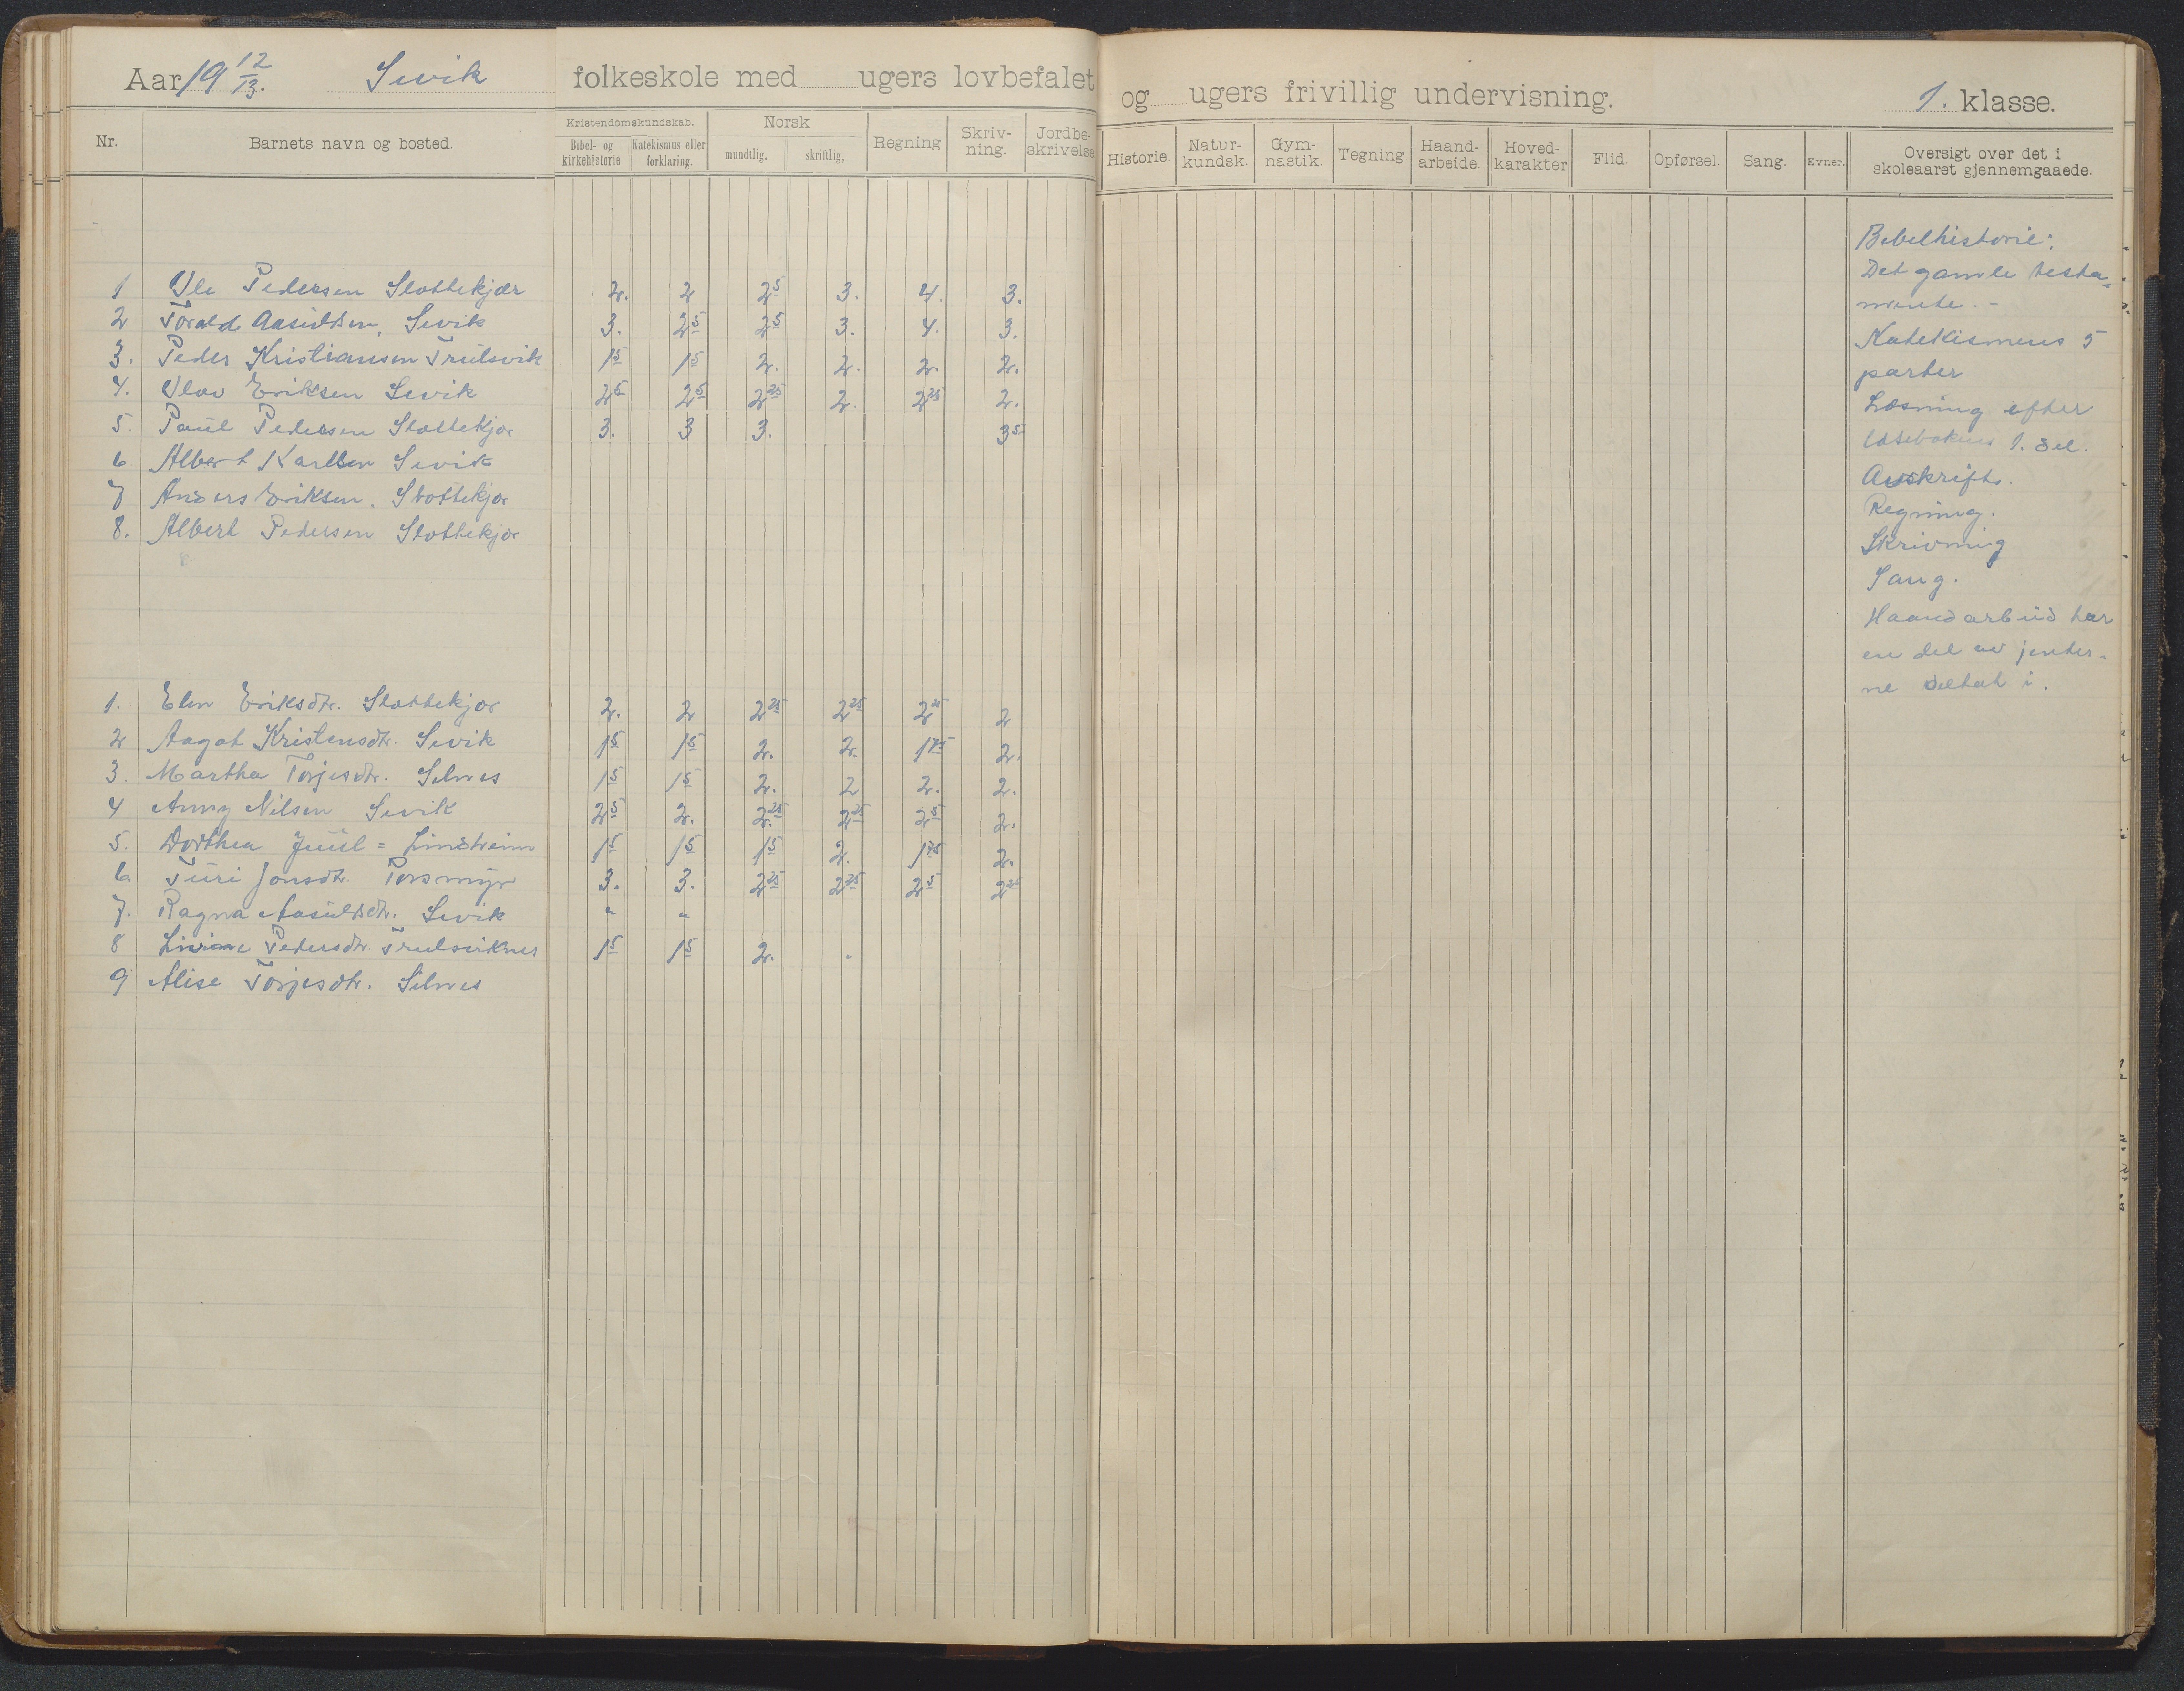 Aar 19 12/13. Sevik folkeskole med ugers lovbefalet og ugers frivillig undervisning. 1. klasse.
Nr. Barnets navn og bosted. Kristendomskundskab. Bibel- og kirkehistorie Katekismus eller forklaring. Norsk mundtlig. skriftlig. Regning Skriv-ning. Jordbe-skrivelse Historie. Natur-kundsk. Gym-nastik. Tegning. Haand-arbeide. Hoved-karakter Flid. Opførsel. Sang. Evner. Oversigt over det i skoleaaret gjennemgaaede.
1 Ole Pedersen Slottekjær 2. 2 2 5 3. 4. 3.
2 Torald Aasuldsen, Sevik 3. 2 5 2 5 3. 4. 3.
3. Peder Kristiansen Trulsvik 1 5 1 5 2. 2. 2. 2.
4. Olav Eriksen Sevik 2 5 2 5 2 25 2. 2 25 2.
5. Paul Pedersen Slottekjær 3. 3 3. 3 5
6 Albert Karlsen Sevik
7 Anders Eriksen. Slottekjær
8. Albert Pedersen Slottekjær
1. Elen Eriksdtr. Slottekjær 2. 2 2 25 2 25 2 25 2
2 Aagot Kristensdtr. Sevik 1 5 1 5 2. 2. 1 75 2.
3. Martha Torjesdtr. Selnes 1 5 1 5 2. 2 2. 2.
4 Anny Nilsen Sevik 2 5 2. 2 25 2 25 2 5 2.
5. Dorthea Juul = Lindheim 1 5 1 5 1 5 2. 1 75 2.
6 Turi Jonsdtr. Porsmyr 3. 3. 2 25 2 25 2 5 2 25
7. Ragna Aasuldsdtr. Sevik " "
8 Pedersdtr. Trulsviknes 1 5 1 5 2. "
9 Alise Torjesdtr. Selnes
Bibelhistorie:
Det gamle testa-
mente. -
Katekismens 5
parter
Læsning efter
læsebokens 1. del.
Avskrift.
Regning.
Skrivning
Sang.
Haandarbeid har
en del av jenter-
ne deltat i.